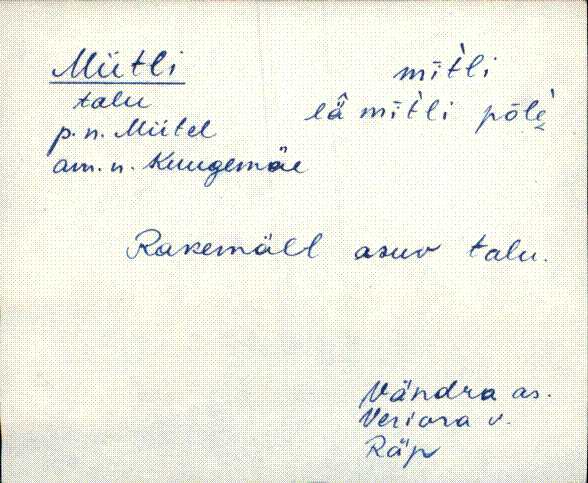 Mütli
talu
p. n. Mütel
am. n. Kuugemäe
mīt̀li
lǟ mīt̀li põlè
Rakemäll asuv talu.
Vändra as.
Veriora v.
Räp